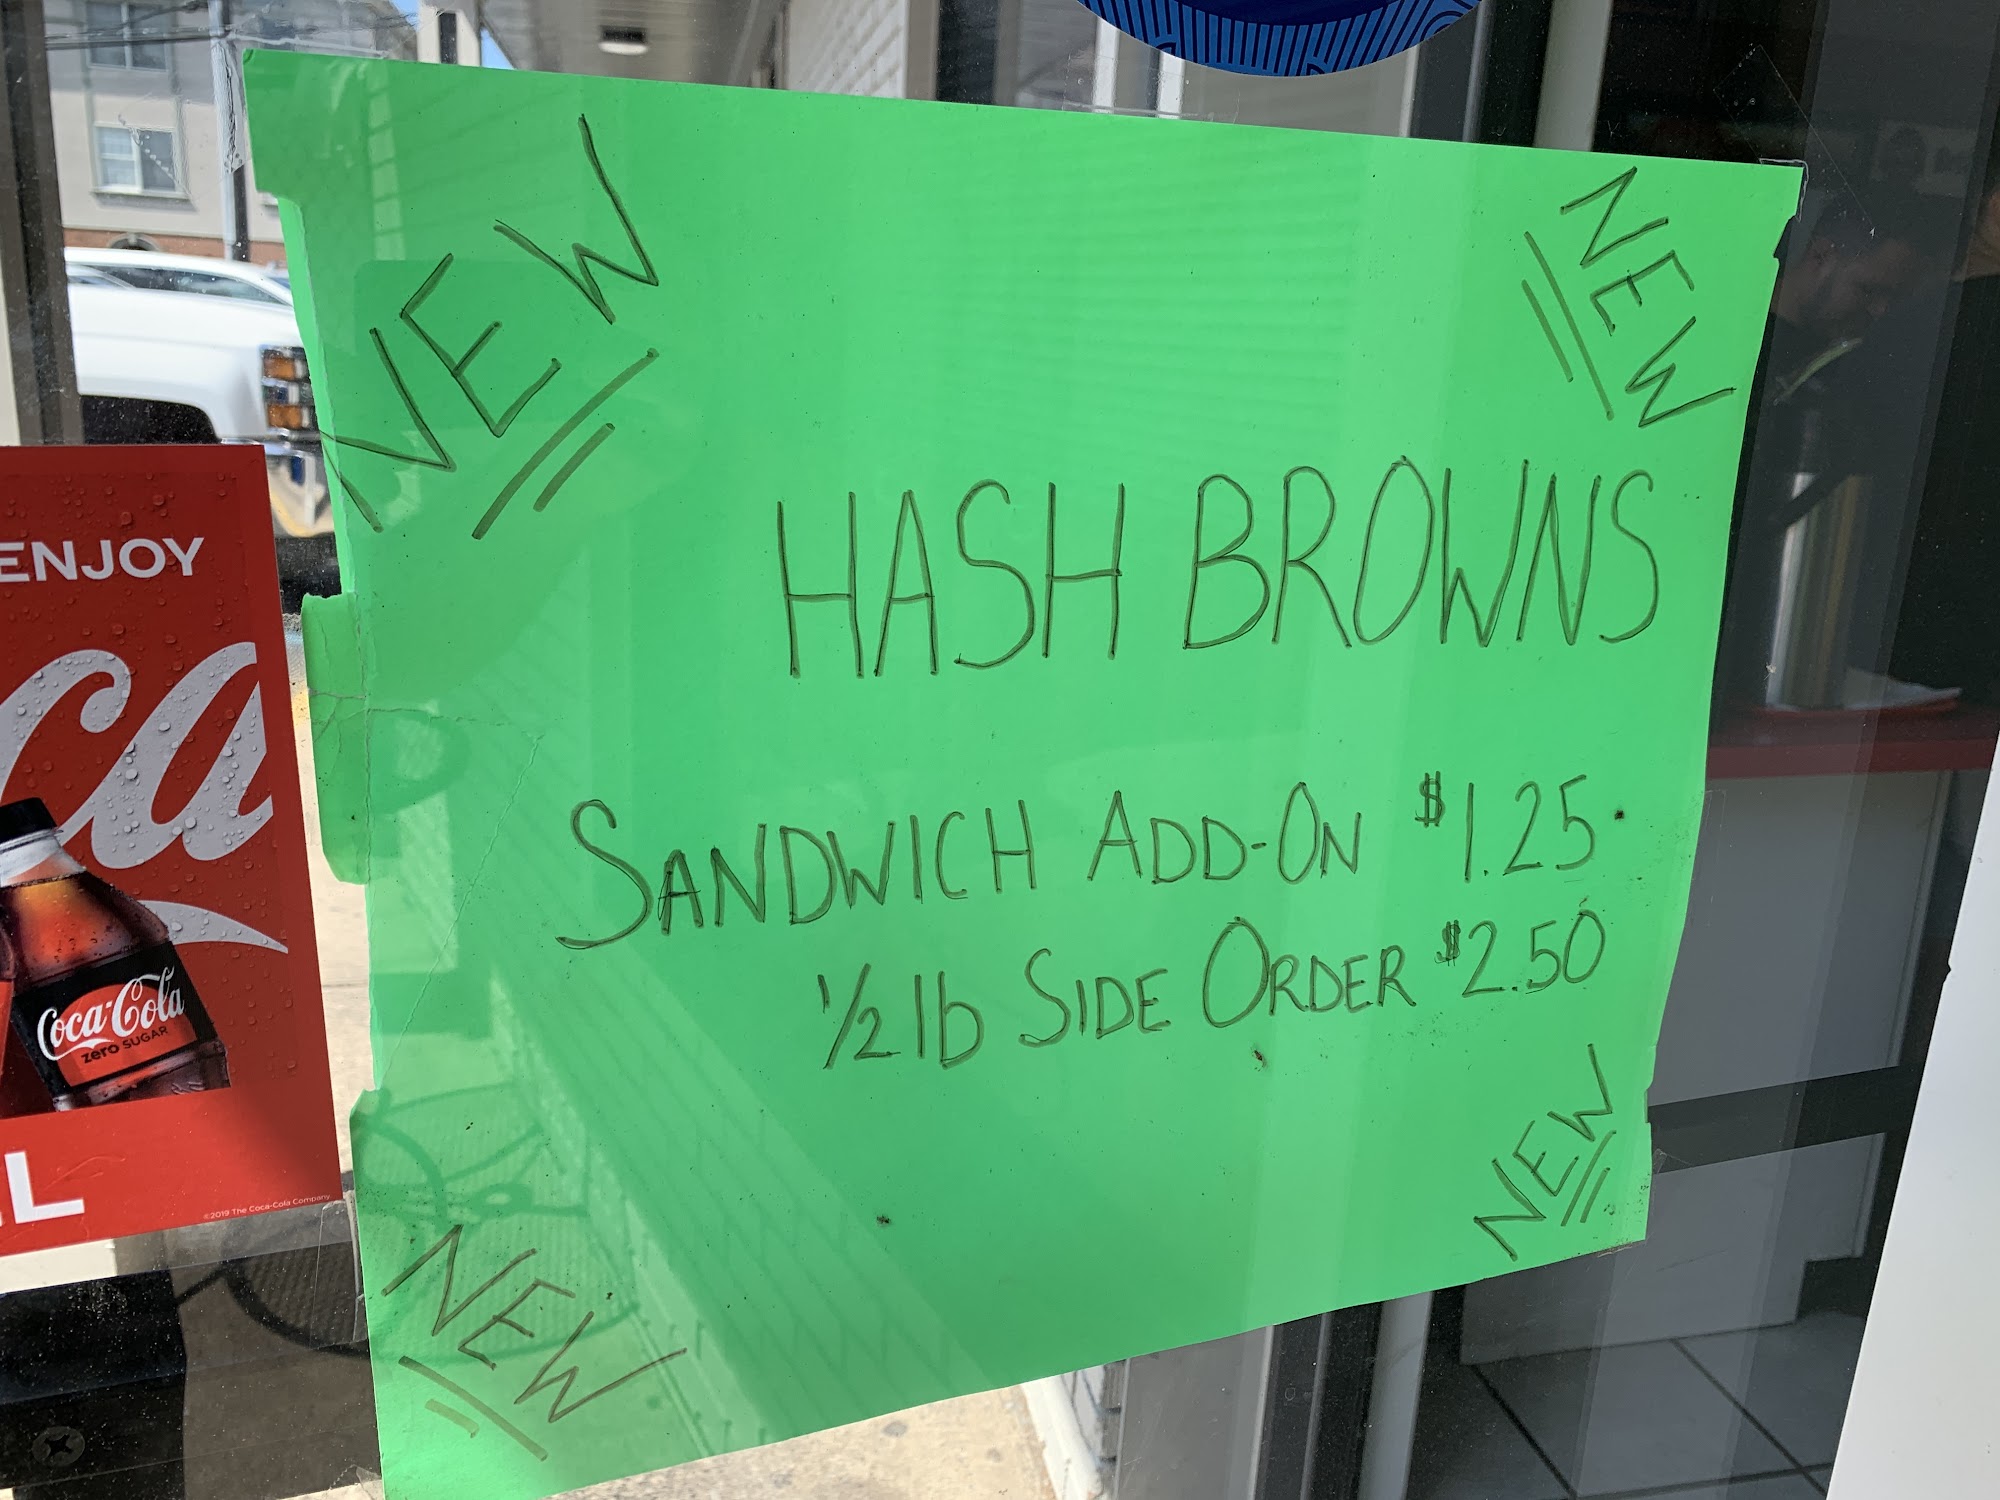 NEW
NEW
HASH BROWNS
SANDWICH ADD-ON $1.25
1/2 lb SIDE ORDER $2.50
NEW
NEW
ENJOY
Coca-Cola
zero SUGAR
©2019 The Coca-Cola Company.